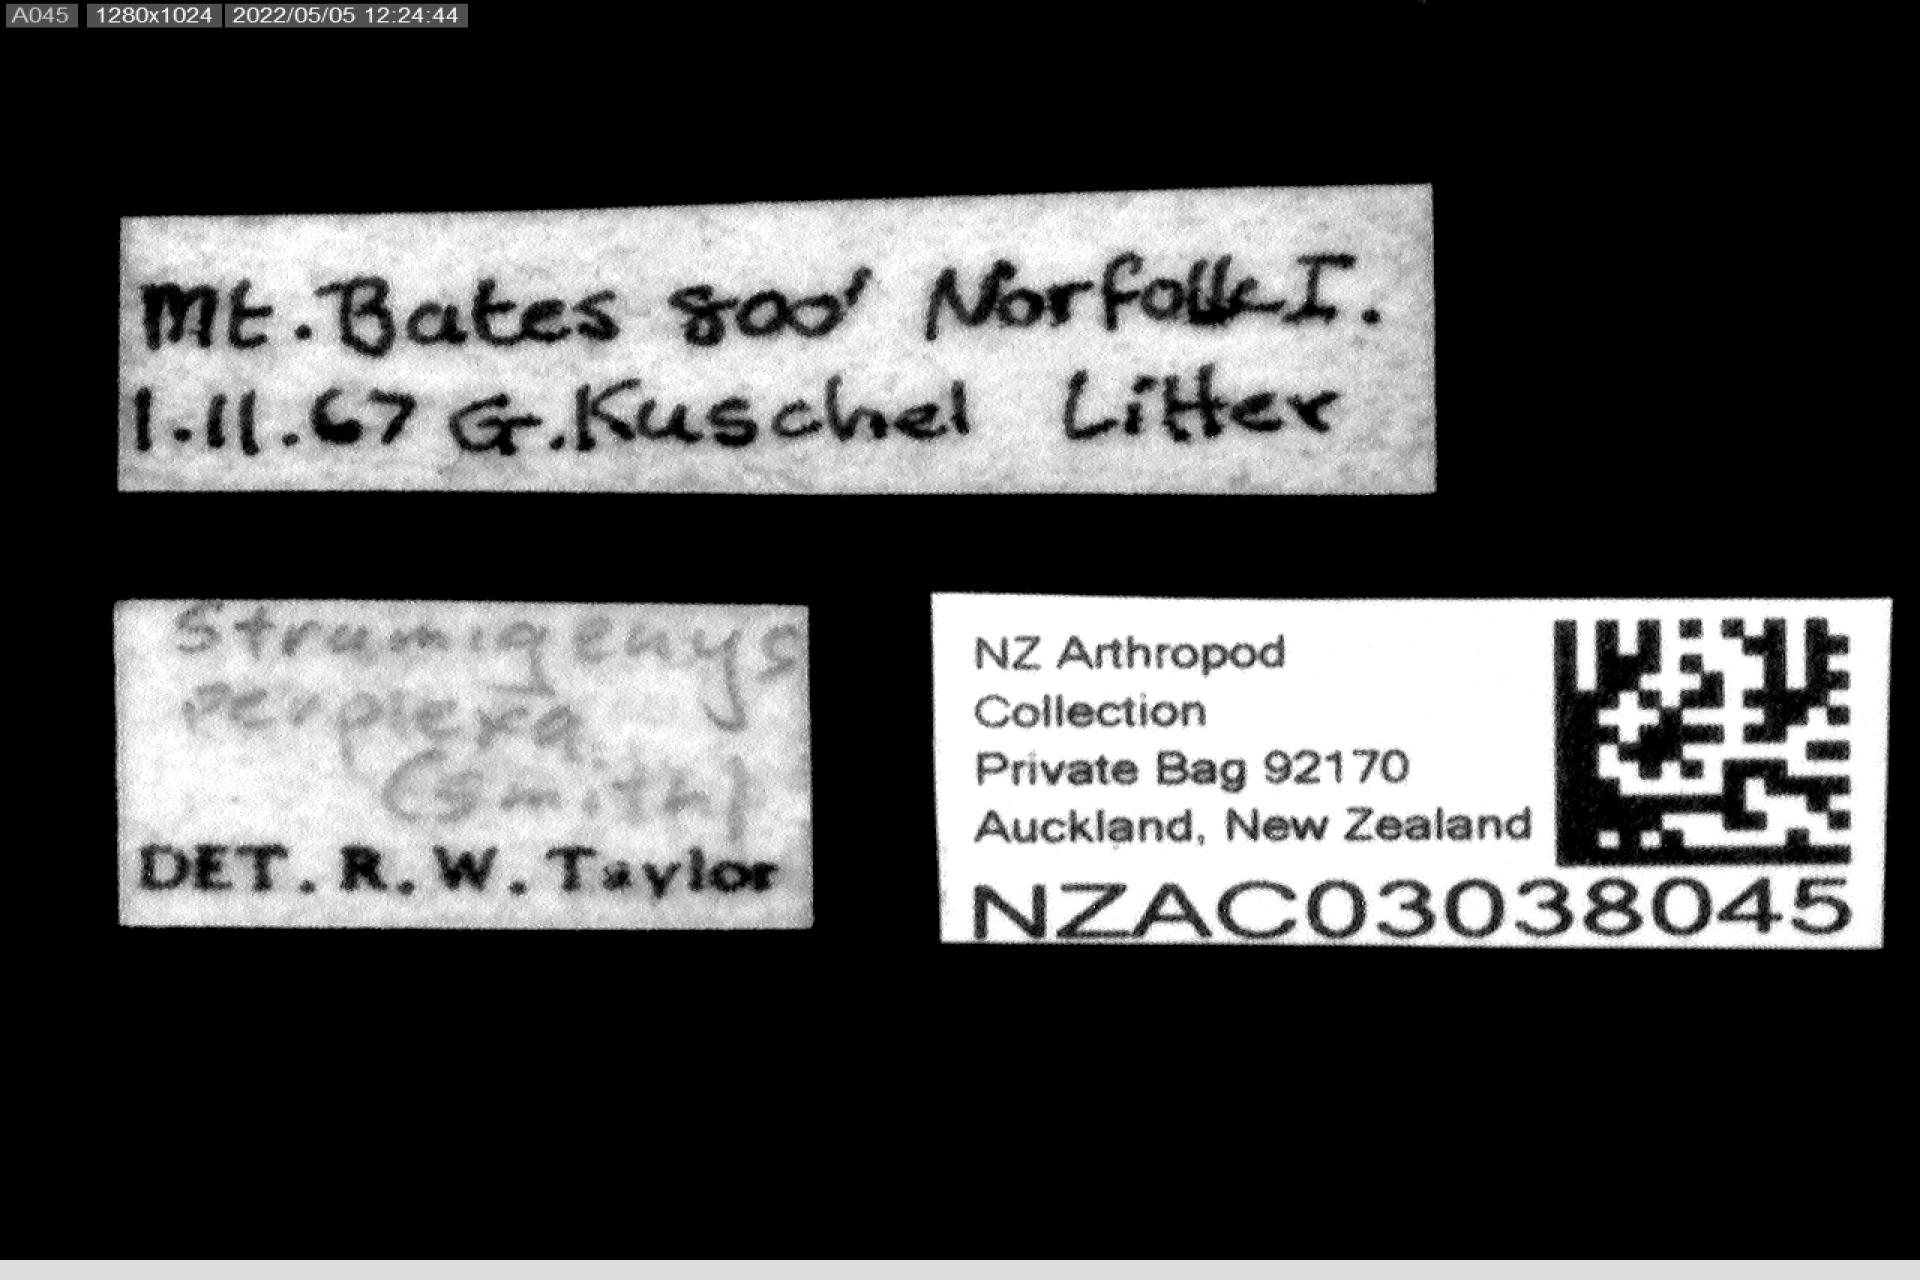 A045 1280x1024 2022/05/05 12:24:44
Mt. Bates 800' Norfolk I.
1.11.67 G. Kuschel Litter
Strumigenys
perplexa
(Smith)
DET. R. W. Taylor
NZ Arthropod
Collection
Private Bag 92170
Auckland, New Zealand
NZAC03038045